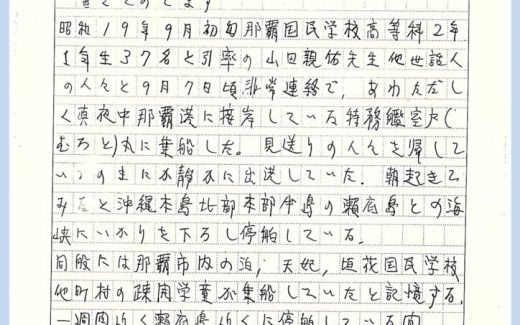 昭和19年9月初旬那覇国民学校高等科2年
1年生37名と引率の山田親佑先生他世話人
の人々と9月7日頃非常連絡で、あわただし
く真夜中那覇港に接岸している特務艦室戸(
むろと)丸に乗船した。見送りの人々を帰して
いつの まにか静かに出港していた。朝起きて
みると沖縄本島北部本部半島の瀬底島との海
峡にいかりを下ろし停舶している。
同船には那覇市内の泊、天妃、垣花国民学校
他町村の疎開学童が乗船していたと記憶する。
一週間近く瀬底島近くに停舶している間